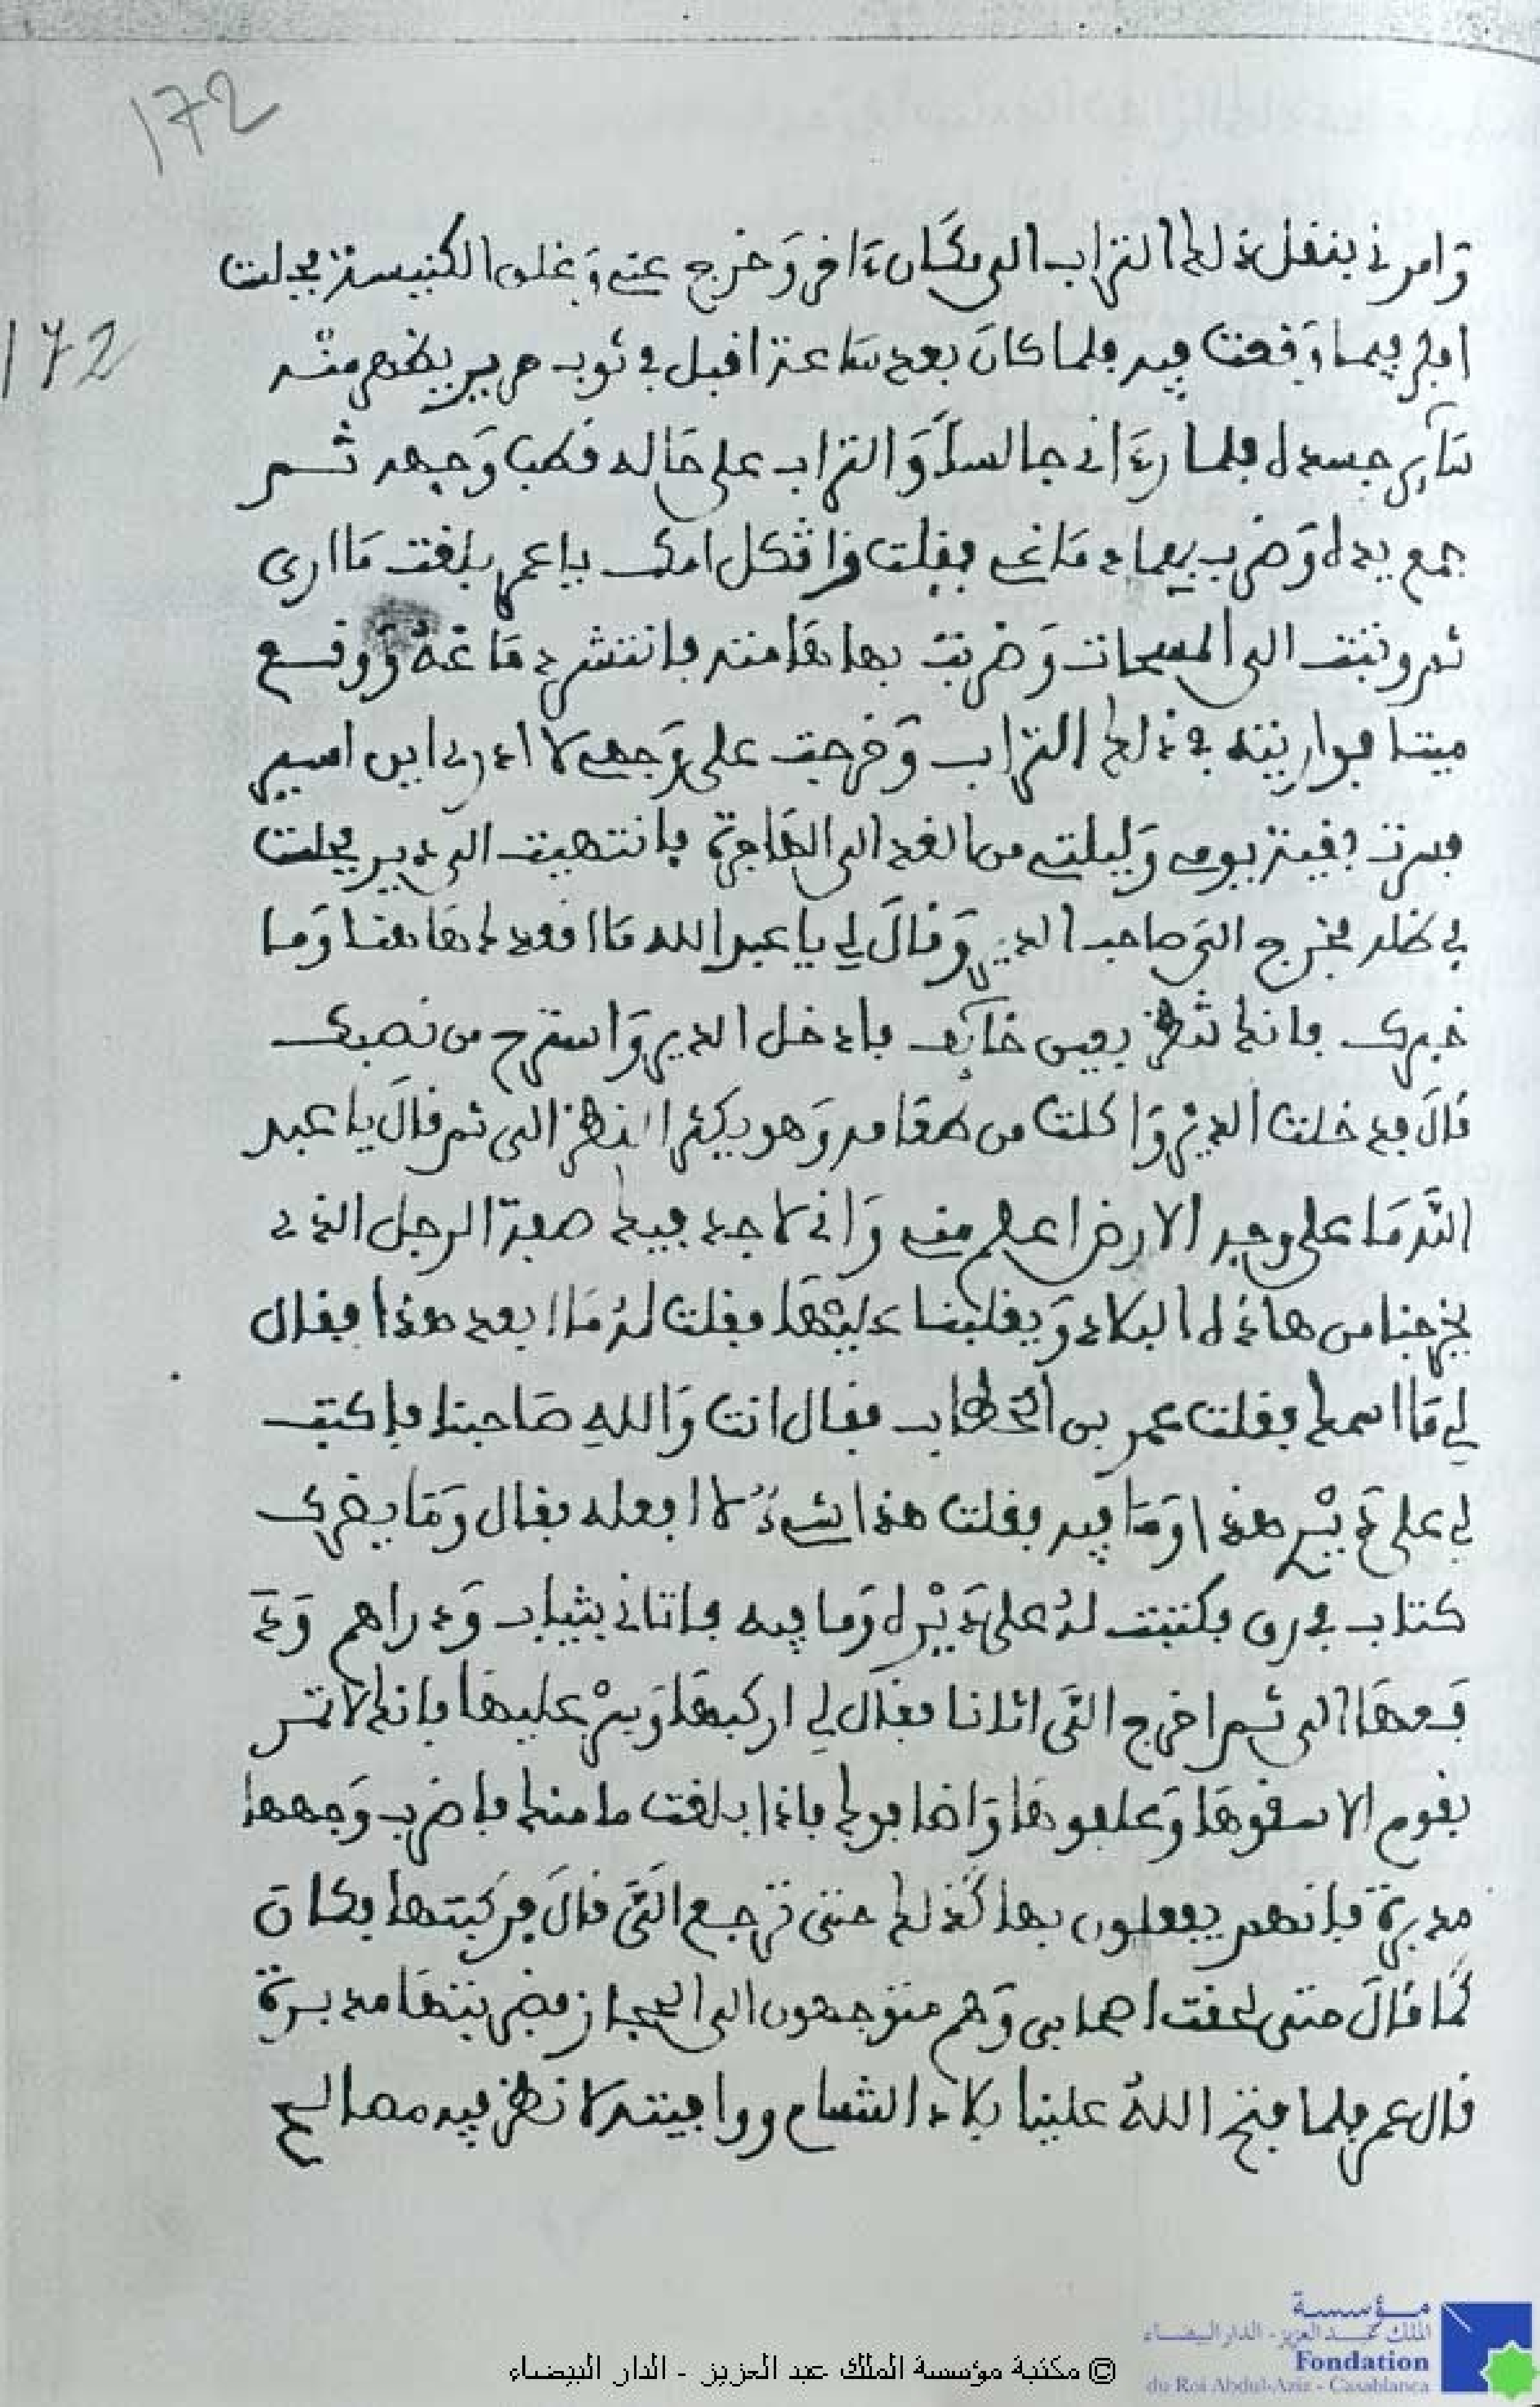 172
172
وَامرني بنقل ذلك التراب الى مكَان ءَاخر وَخرج عني وَغلق الكنيسة فجلت
افكر فيما وَقعت فيه فلما كانَ بعد سَاعة اقبل في ثوب حرير يظهر منه
سَآير جسده فلما رءَاني جالساً وَالتراب على حَاله قطب وَجهه ثم
جمع يده وَضرب بها دمَاغي فقلت واثكل امك ياعمر بلغت مَا ارى
ثم وثبت الى المسحات وَضربت بها هَامته فانتثر دمَاغهُ وَوقع
ميتا فواريته في ذلك التراب وَخرجت على وَجهي لا ادري اين اسير
فسرت بقية يومي وَليلتي من الغد الى الهَاجرة فانتهيت الى دير فجلت
في ظله فخرج الي صاحب الدير وَقالَ لي يا عبد الله مَا اقعدك هَاهنا وَما
خبرك فانك تنظر بعين خايَف فادخل الدير وَاسترح من نصبك
قالَ فدخلت الدير وَاكلت من طعَامه وَهو يكثر النظر الى ثم قالَ يا عبد
اللَّه مَا على وجه الارض اعلم مني وَاني لاجد فيك صفة الرجل الذي
يخرجنا من هاذه البلاد وَيغلبنا عليْهَا فقلت لهُ مَا ابعد هذا فقال
لي مَا اسمك فقلت عمر بن الخطاب فقال انت وَاللهِ صَاحبنا فاكتب
لي على دَيْرِ هذا وَمَا فيه فقلت هذا شيءٌ لا افعله فقال وَمَا يضرك
كتاب في رق فكتبت لهُ على دَيْره وَما فيه فاتاني بثياب وَدراهم وَدَ
فَعهَا الى ثم اخرج الَي اتانا فقال لي اركبهَا وَسرْ عليهَا فانك لا تمر
بقوم الا سقوهَا وَعلفوهَا وَاضافوك فاذا بلغت مامنك فاضرب وَجهها
مدبرة فانهم يفعلون بها كَذلك حتى ترجع الَيّ قالَ فركبتها فكان
كمَا قالَ حتى لحقت اصحابي وَهم متوجهون الى الحجاز فضربتهَا مدبرة
قال عمر فلما فتح اللهُ علينا بلاد الشام ووافيته لانظر فيه مصالح
© مكتبة مؤسسة الملك عبد العزيز - الدار البيضاء
مؤسسة
الملك عبد العزيز - الدار البيضاء
Fondation
du Roi Abdul-Aziz - Casablanca